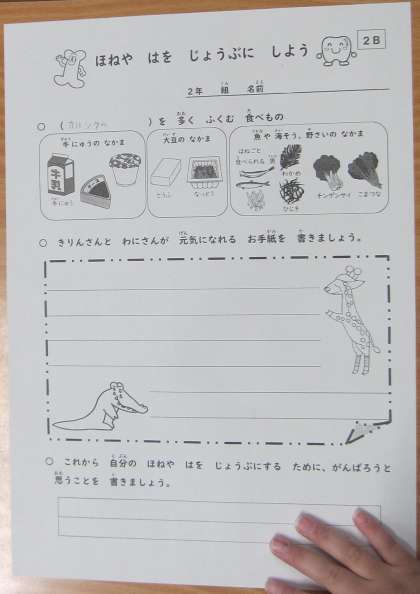 2B
ほねや はを じょうぶに しよう
2年 組 名前
○ (カルシウム )を 多く ふくむ 食べもの
牛にゅうの なかま
大豆の なかま
魚や 海そう、野さいの なかま
牛乳
牛にゅう
とうふ
なっとう
ほねごと
食べられる 魚
わかめ
ひじき
チンゲンサイ
こまつな
○ きりんさんと わにさんが 元気になれる お手紙を 書きましょう。
○ これから 自分の ほねや はを じょうぶにする ために、がんばろうと
思うことを 書きましょう。